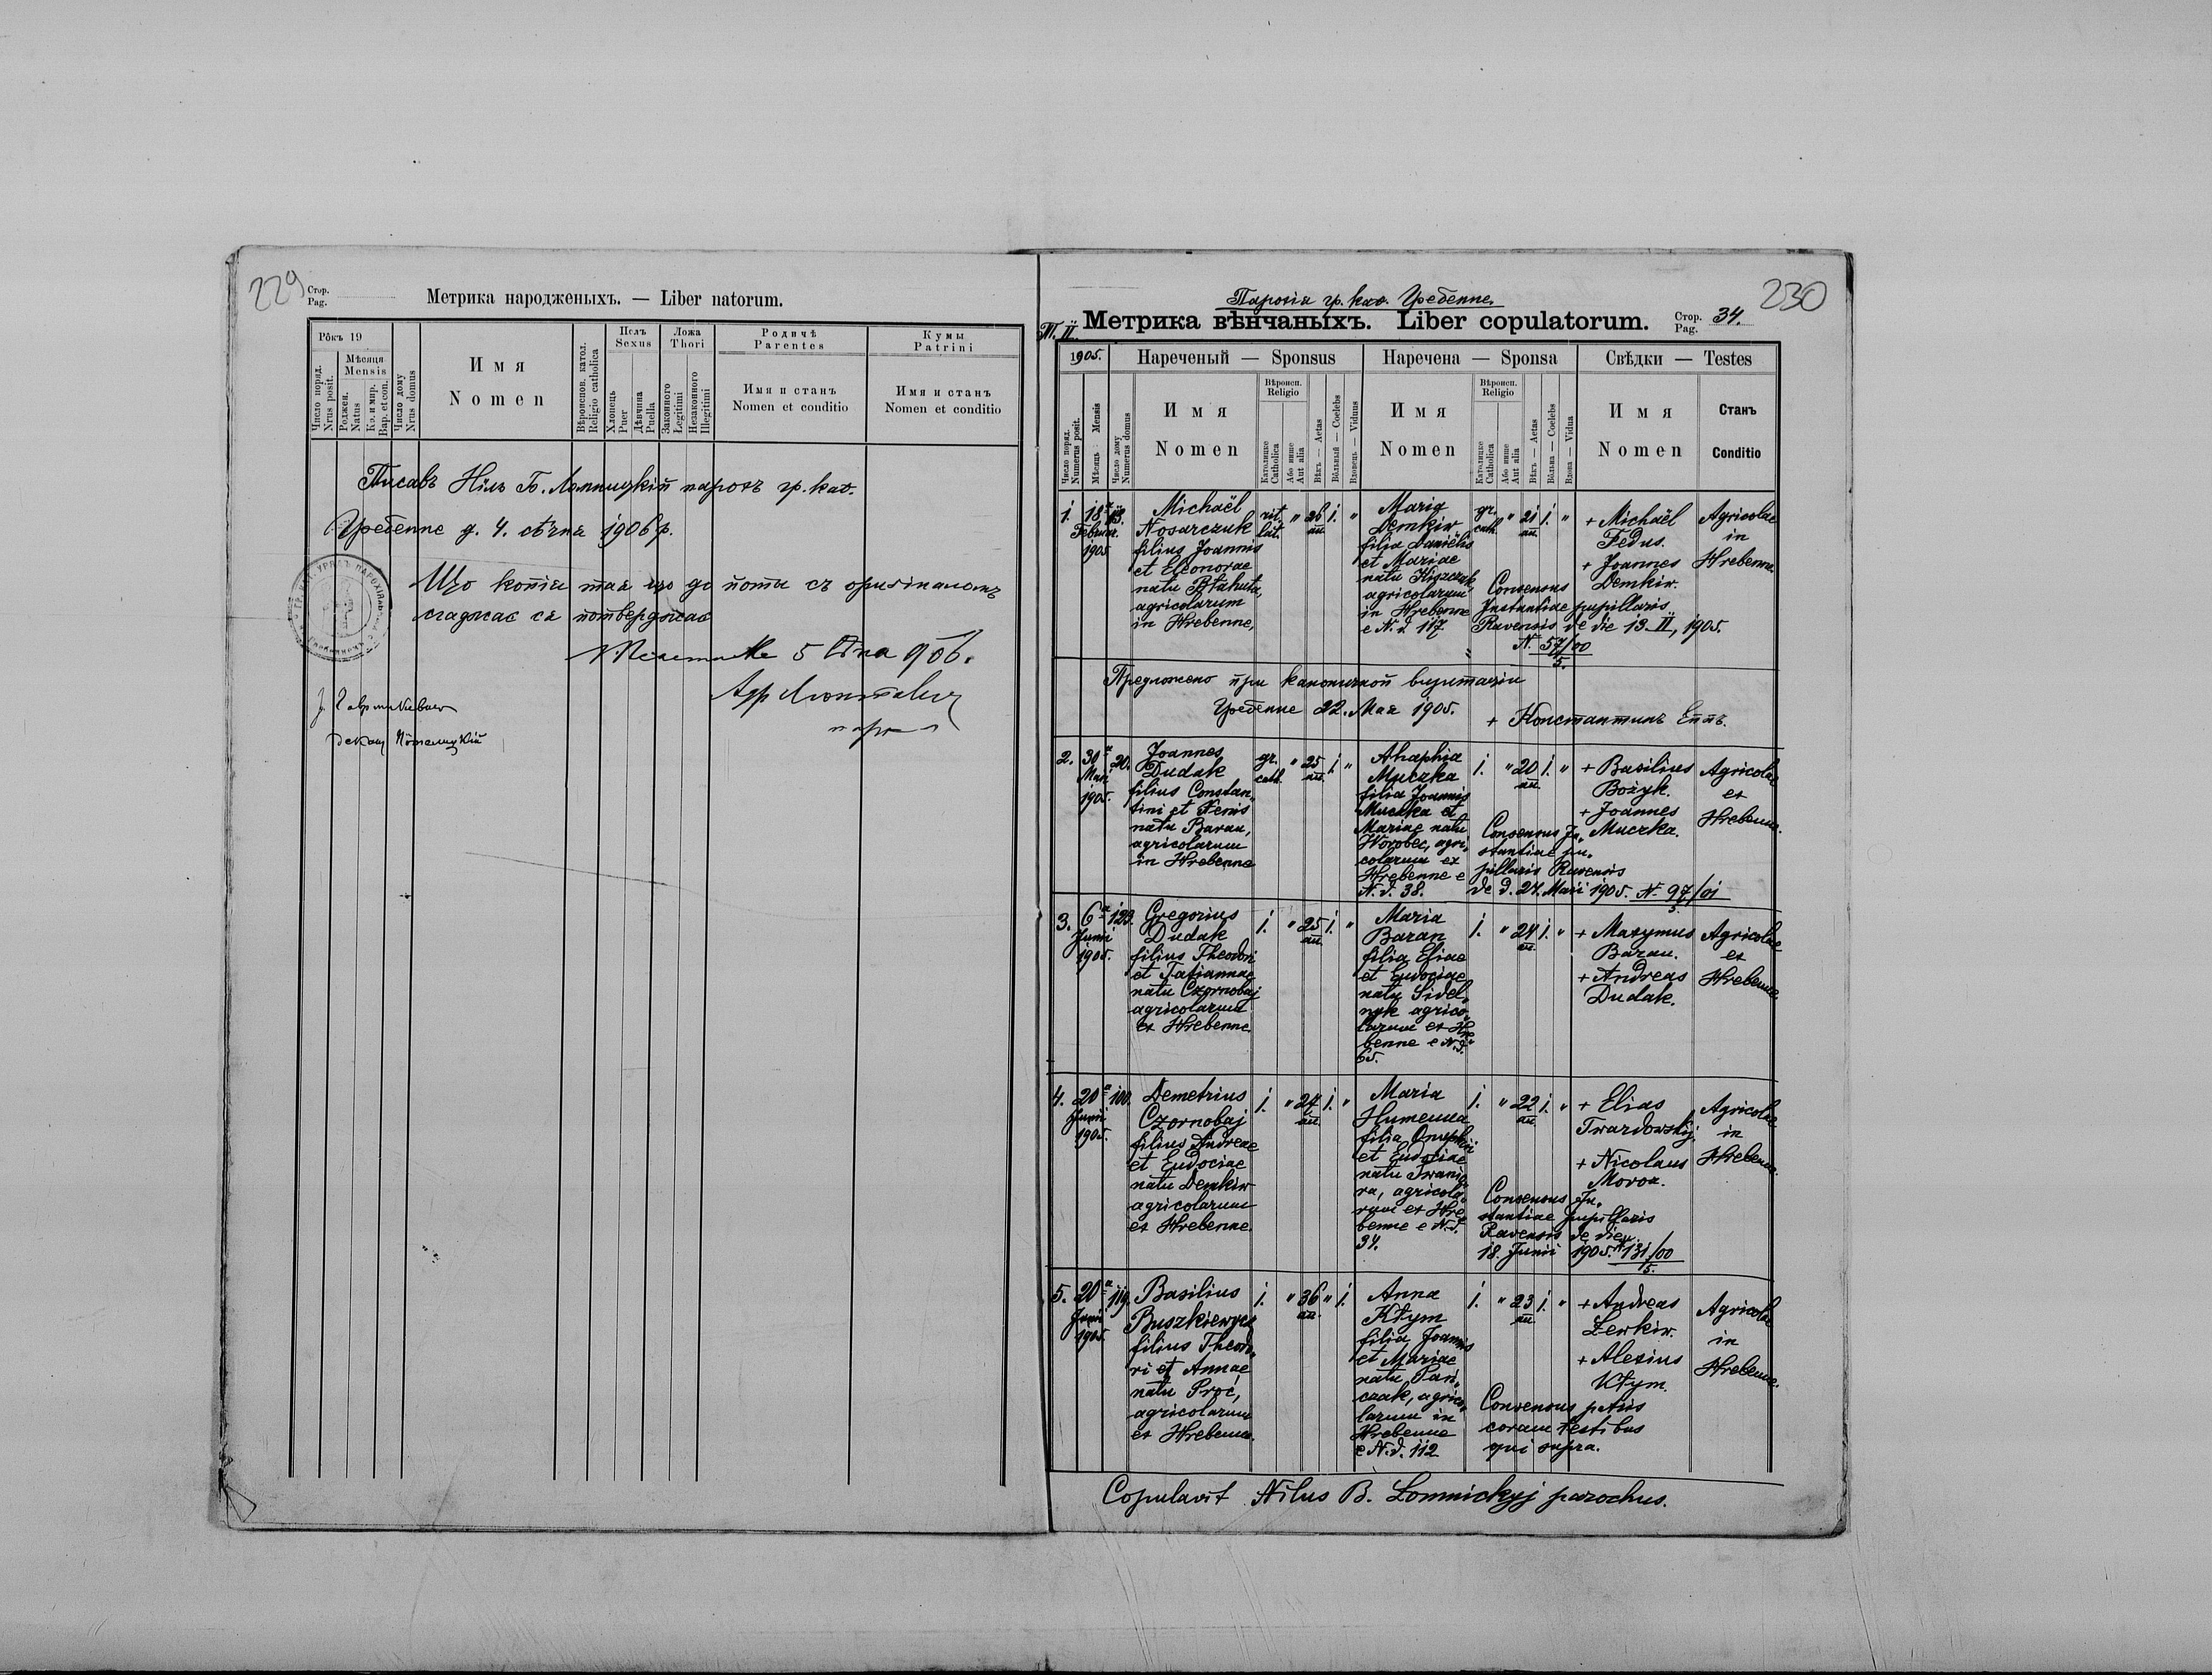 229
Стор.
Pag.
Метрика народженыхъ. — Liber natorum.
Рôкъ 19
Число поряд.
Nrus posit.
Мѣсяця
Mensis
Роджен.
Natus
Кр. и мир.
Bap. et con.
Число дому
Nrus domus
Имя
Nomen
Вѣроиспов. катол.
Religio catholica
Полъ
Sexus
Хлопець
Puer
Дѣвчина
Puella
Ложа
Thori
Законного
Legitimi
Незаконного
Illegitimi
Родичѣ
Parentes
Имя и станъ
Nomen et conditio
Кумы
Patrini
Имя и станъ
Nomen et conditio
Писавъ Нілъ Б. Ломницкій парохъ гр. кат.
Гребенне д. 4. сѣчня 1906 р.
Що копія тая що до ноты съ оригіналомъ
згаджає ся потверджає
230
Парохія гр. кат. Гребенне.
Т. II.
Метрика вѣнчаныхъ. Liber copulatorum.
Стор.
Pag. 34.
1905.
Нареченый — Sponsus
Наречена — Sponsa
Свѣдки — Testes
Число поряд.
Numerus posit.
Мѣсяць Mensis
Число дому
Numerus domus
Имя
Nomen
Вѣроисп.
Religio
Католицке
Catholica
Або инше
Aut alia
Вѣкъ — Aetas
Вôльный — Coelebs
Вдовець — Viduus
Имя
Nomen
Вѣроисп.
Religio
Католицке
Catholica
Або инше
Aut alia
Вѣкъ — Aetas
Вôльна — Coelebs
Вдова — Vidua
Имя
Nomen
Станъ
Conditio
1. 18 a
Februar.
1905
Michaël
Nosarczuk
filius Joannis
et Eleonorae
natu Ptahuta,
agricolarum
in Hrebenne,
rit.
lat.
" 26 an. 1. "
Maria
Demkiw
filia Danielis
et Mariae
natu Kiszczak,
agricolarum
in Hrebenne
e N. d. 117
gr.
cath.
" 21 an. 1. "
+ Michaël
Fedus.
+ Joannes
Demkiw.
Agricolae
in
Hrebenne.
Consensus
Instantiae pupillaris
Ravensis de die 13. II, 1905.
N. 57/00
5.
Предложено при каноничной визитаціи
Гребенне 22. Мая 1905.
+ Константинъ Епп.
2. 30 a
Maii
1905.
20.
Joannes
Dudak
filius Constan„
tini et Xenis
natu Baran,
agricolarum
in Hrebenne
gr.
cath.
" 25 an. 1. "
Ahaphia
Muczka
filia Joannis
Muczka et
Mariae natu
Worobec, agri„
colarum ex
Hrebenne e
N. d. 38.
1. " 20 an. 1. "
+ Basilius
Bożyk.
+ Joannes
Muczka.
Agricolae
ex
Hrebenne.
Consensus In„
stantiae pu„
pillaris Ravensis
de d. 27. Maii 1905. N. 97/01
5.
3. 6 a
Junii
1905.
123.
Gregorius
Dudak
filius Theodori
et Tatiannae
natu Czornobaj
agricolarum
ex Hrebenne.
1. " 25 an. 1. "
Maria
Baran
filia Eliae
et Eudociae
natu Sidel„
nyk agrico„
larum ex Hre„
benne e N. d.
65.
1. " 24 an. 1. "
+ Maxymus
Baran.
+ Andreas
Dudak.
Agricolae
ex
Hrebenne
4. 20 a
Junii
1905.
100.
Demetrius
Czornobaj
filius Andreae
et Eudociae
natu Demkiw
agricolarum
ex Hrebenne.
1. " 24 an. 1. "
Maria
Humenna
filia Onuphrii
et Eudociae
natu Iwani„
ra, agricola„
rum ex Hre„
benne e N. d.
34.
1. " 22 an. 1. "
+ Elias
Twardowskij.
+ Nicolaus
Moroz.
Agricolae
in
Hrebenne.
Consensus In„
stantiae pupillaris
Ravensis de die
18. Junii 1905. N. 131/00
5.
5. 20 a
Junii
1905.
119.
Basilius
Buszkiewycz
filius Theodo„
ri et Annae
natu Proć,
agricolarum
ex Hrebenne.
1. " 36 an. " 1.
Anna
Kłym
filia Joannis
et Mariae
natu Pan„
czak, agrico„
larum in
Hrebenne
e N. d. 112
1. " 23 an. 1. "
+ Andreas
Lewkiw.
+ Alexius
Kłym.
Agricolae
in
Hrebenne.
Consensus patris
coram testibus
qui supra.
Copulavit Nilus B. Lomnickyj parochus.